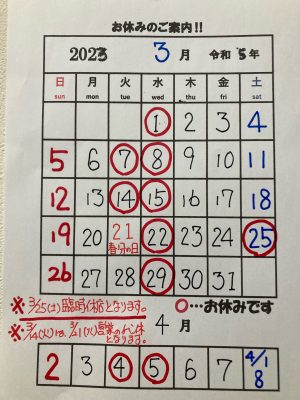 お休みのご案内!!
2023 3月 令和5年
日 月 火 水 木 金 土
sun mon tue wed thu fri sat
1 2 3 4
5 6 7 8 9 10 11
12 13 14 15 16 17 18
19 20 21 22 23 24 25
春分の日
26 27 28 29 30 31
※3/25(土)臨時休業となります。
○…お休みです
※3/14(火)は、3/21(火)営業の
となります。
4月
2 3 4 5 6 7 4/1
8